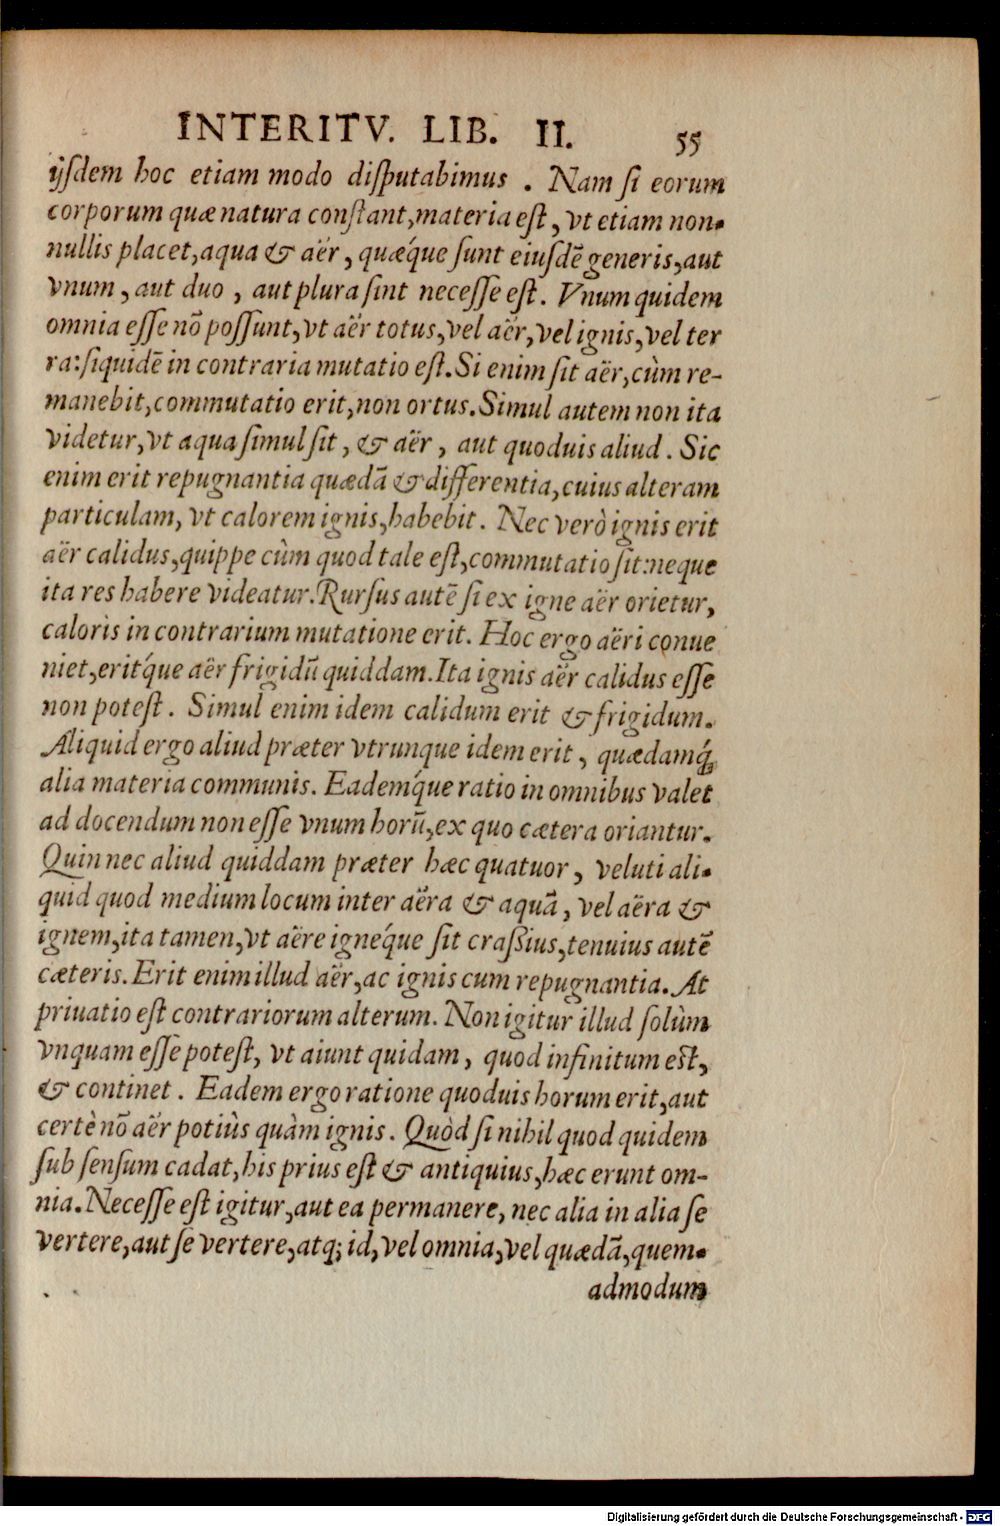 INTERITV. LIB. II. 55
ijsdem hoc etiam modo disputabimus. Nam si eorum
corporum quæ natura constant, materia est, vt etiam non-
nullis placet, aqua & aër, quæq́ue sunt eiusdẽ generis, aut
vnum, aut duo, aut plura sint necesse est. Vnum quidem
omnia esse nõ possunt, vt aër totus, vel aër, vel ignis, vel ter
ra: siquidẽ in contraria mutatio est. Si enim sit aër, cùm re-
manebit, commutatio erit, non ortus. Simul autem non ita
videtur, vt aqua simul sit, & aër, aut quoduis aliud. Sic
enim erit repugnantia quædã & differentia, cuius alteram
particulam, vt calorem ignis, habebit. Nec verò ignis erit
aër calidus, quippe cùm quod tale est, commutatio sit: neque
ita res habere videatur. Rursus autẽ si ex igne aër orietur,
caloris in contrarium mutatione erit. Hoc ergo aëri conue
niet, erit́que aër frigidũ quiddam. Ita ignis aër calidus esse
non potest. Simul enim idem calidum erit & frigidum.
Aliquid ergo aliud præter vtrunque idem erit, quædamq́;
alia materia communis. Eadeḿque ratio in omnibus valet
ad docendum non esse vnum horũ, ex quo cætera oriantur.
Quin nec aliud quiddam præter hæc quatuor, veluti ali-
quid quod medium locum inter aëra & aquã, vel aëra &
ignem, ita tamen, vt aëre igneq́ue sit craßius, tenuius autẽ
cæteris. Erit enim illud aër, ac ignis cum repugnantia. At
priuatio est contrariorum alterum. Non igitur illud solùm
vnquam esse potest, vt aiunt quidam, quod infinitum est,
& continet. Eadem ergo ratione quoduis horum erit, aut
certè nõ aër potiùs quàm ignis. Quòd si nihil quod quidem
sub sensum cadat, his prius est & antiquius, hæc erunt om-
nia. Necesse est igitur, aut ea permanere, nec alia in alia se
vertere, aut se vertere, atq; id, vel omnia, vel quædã, quem-
admodum
Digitalisierung gefördert durch die Deutsche Forschungsgemeinschaft - DFG